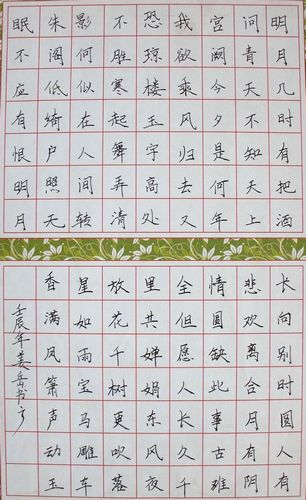 明月几时有把酒
问青天不知天上
宫阙今夕是何年
我欲乘风归去又
恐琼楼玉宇高处
不胜寒起舞弄清
影何似在人间转
朱阁低绮户照无
眠不应有恨明月
长向别时圆人有
悲欢离合月有阴
情圆缺此事古难
全但愿人长久千
里共婵娟东风夜
放花千树更吹落
星如雨宝马雕车
香满风箫声动玉
壬辰年姜岳书